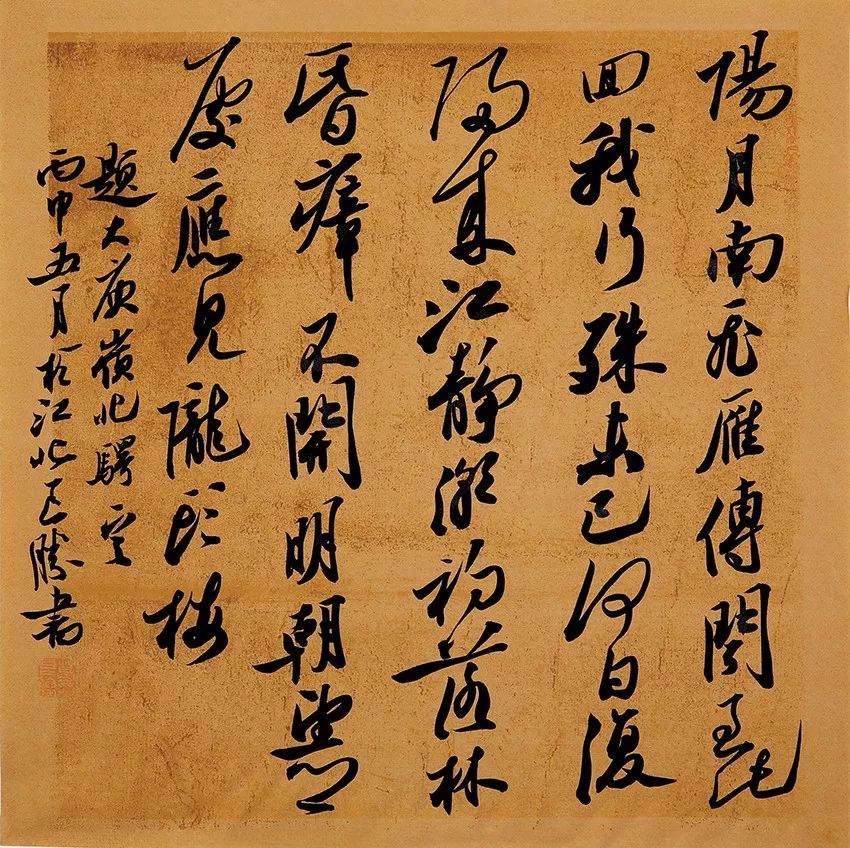 陽月南飛雁傳聞至此
回我行殊未已何日復
歸來江靜潮初落林
昏瘴不開明朝望鄉
處應見隴頭梅
題大庾嶺北驛
丙申五月於江北勝書